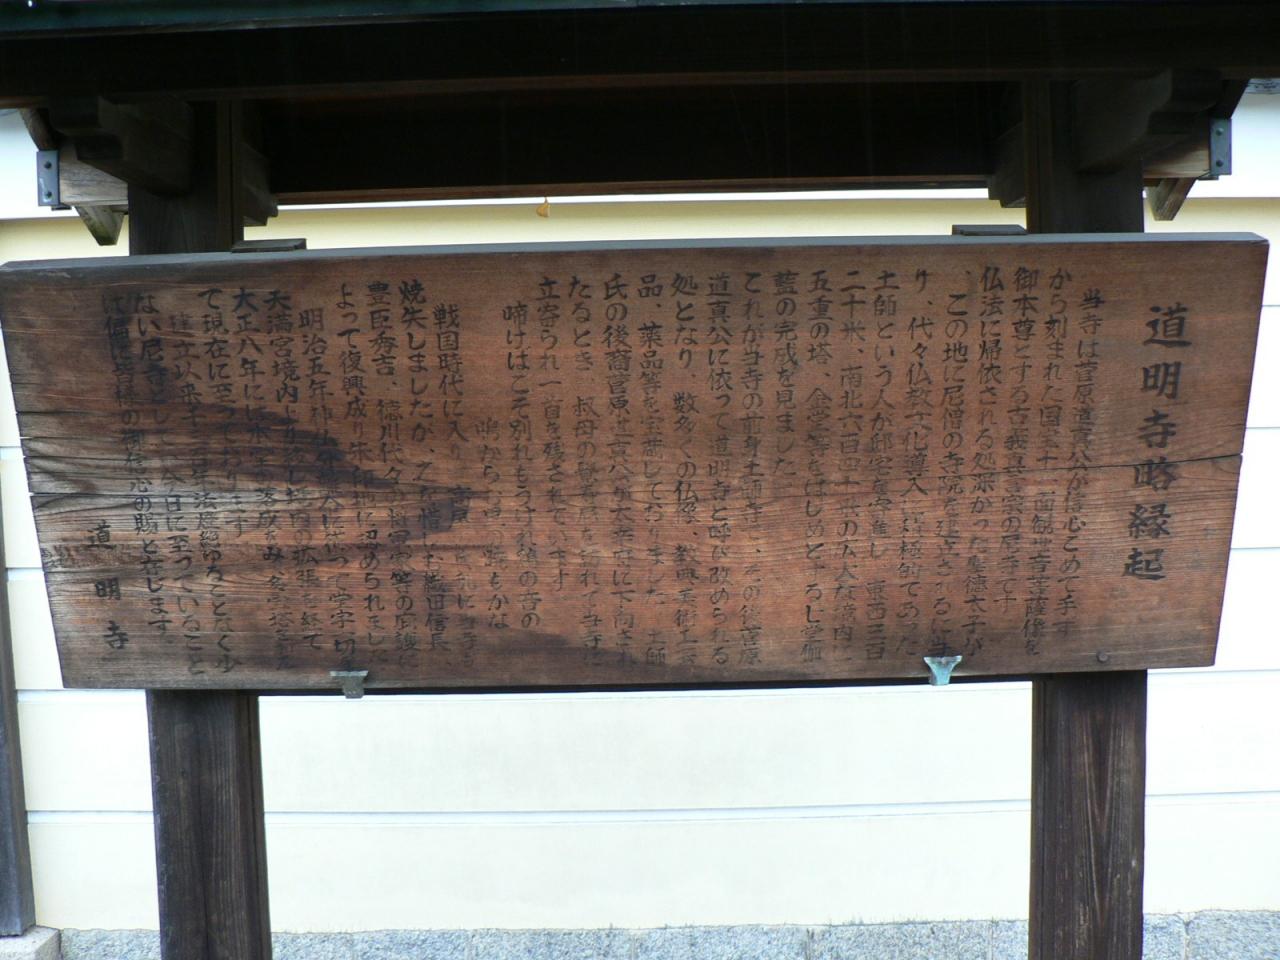 道明寺略縁起
当寺は菅原道真公が信心こめて手ず
から刻まれた国宝十一面観世音菩薩像を
御本尊とする古義真言宗の尼寺です
仏法に帰依される処深かった聖徳太子が
この地に尼僧の寺院を建立されるに当
り、代々仏教文化導入に積極的であった
土師という人が邸宅を
東西三百
二十米、南北六百四十
境内に
五重の塔、金堂等をはじめとする
堂伽
藍の完成を見ました
これが当寺の前身土師寺で、その後菅原
道真公に依って道明寺と呼び改められる
処となり、数多くの仏像、教典美術工芸
品、薬品等を宝蔵しておりました 土師
氏の後裔菅原道真公が太宰府に下向され
たるとき、叔母の覚寿尼を訪れて当寺に
立寄られ一首を残されています
啼けばこそ別れもうけれ鶏の音の
鳴からむ里の暁もかな
戦国時代に入り
兵乱に当寺も
焼失しましたが、之を惜しむ織田信長、
豊臣秀吉、徳川代々の将軍家等の庇護に
よって復興成り朱印地に認められました
明治五年神
によって堂宇一切を
天満宮境内より移し境内の拡張を終て
大正八年には本堂の落成をみ多宝塔を
て現在に至っております
建立以来千
百年法燈絶ゆることなく少
ない尼寺として今日に至っていること
は偏に皆様の御信心の賜と存じます
道明寺